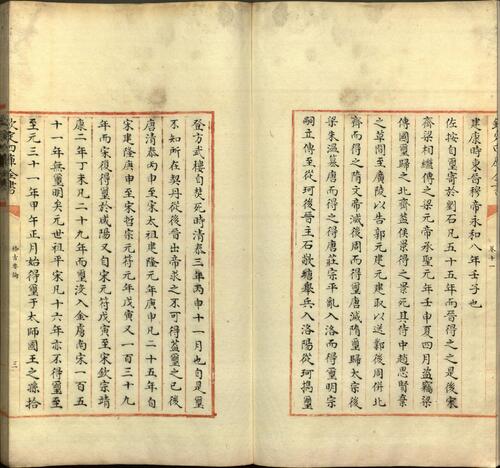 建康時東晉穆帝永和八年壬子也
佐按自璽寄於劉石凡五十五年而晉得之之是後宋
齊梁相繼傳之梁元帝承聖元年壬申夏四月盜竊梁
傳國璽歸之北齊蓋侯景得之景元其侍中趙思賢棄
之草間至廣陵以告郭元建元建取以送鄴後周併北
齊而得之隋文帝滅後周而得璽唐滅隋璽歸太宗後
梁朱温簒唐而得之得唐莊宗平亂入洛而得璽明宗
嗣立傳至從珂後晉主石敬瑭舉兵入洛陽從珂擕璽
登方武樓自焚死時清泰三年丙申十一月也自是璽
不知所在契丹從後晉出帝求之不可得蓋璽之已後
唐清泰丙申至宋太祖建隆元年庚申凡二十五年自
宋建隆庚申至宋哲宗元符元年戊寅又一百三十九
年而宋復得璽於咸陽又自宋元符戊寅至宋欽宗靖
康二年丁未凡二十九年而璽没入金虜南宋一百五
十一年無璽明矣元世祖平宋凡十六年亦不得璽至
至元三十一年甲午正月始得璽于太師國王之孫拾
欽定四庫全書
格古要論
三